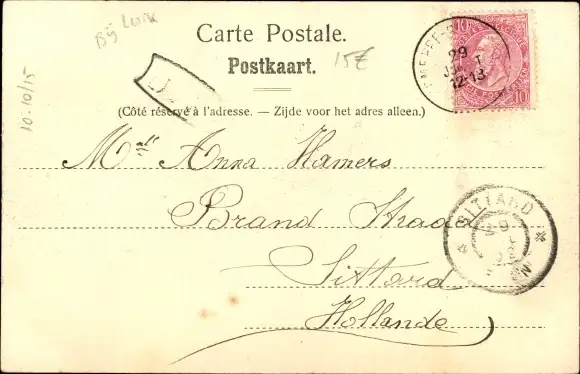 Bÿ Luik
10-10/15
Carte Postale.
Postkaart.
15€
(Côté réservé à l'adresse. — Zijde voor het adres alleen.)
10 10
29
12-13
Mall Anna Hamers
Brand Straat
Sittard
Hollande
SITTARD